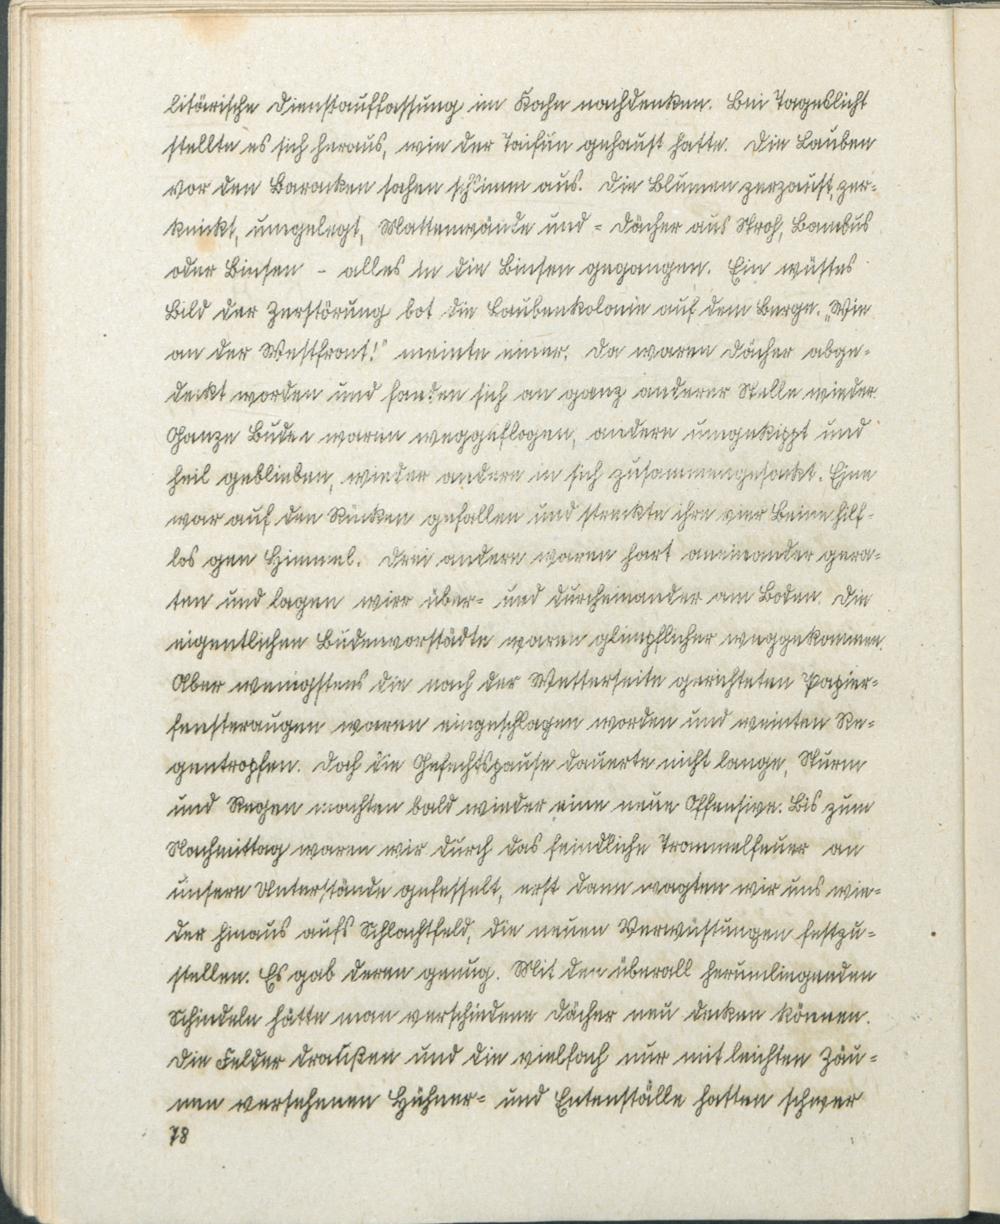 litärische Dienstauffassung im Kahn nachdenken. Bei Tageslicht
stellte es sich heraus, wie der Taifun gehaust hatte. Die Lauben
vor den Baracken sahen schlimm aus. Die Blumen zerzaust, zer-
knickt, umgelegt, Mattenwände und = Dächer aus Stroh, Bambus
oder Binsen – alles in die Binsen gegangen. Ein wüstes
Bild der Zerstörung bot die Laubenkolonie auf dem Berge. „Wie
an der Westfront!" meinte einer. Da waren Dächer abge-
deckt worden und fanden sich an ganz anderer Stelle wieder.
Ganze Buden waren weggeflogen, andere umgekippt und
heil geblieben, wieder andere in sich zusammengesackt. Eine
war auf den Rücken gefallen und streckte ihre vier Beine hilf-
los gen Himmel. Drei andere waren hart aneinander gera-
ten und lagen wirr über= und durcheinander am Boden. Die
eigentlichen Budenvorstädte waren glimpflicher weggekommen.
Aber wenigstens die nach der Wetterseite gerichteten Papier-
fensteraugen waren eingeschlagen worden und weinten Re-
gentropfen. Doch die Gefechtspause dauerte nicht lange, Sturm
und Regen machten bald wieder eine neue Offensive. Bis zum
Nachmittag waren wir durch das feindliche Trommelfeuer an
unsere Unterstände gefesselt, erst dann wagten wir uns wie-
der hinaus aufs Schlachtfeld, die neuen Verwüstungen festzu-
stellen. Es gab deren genug. Mit den überall herumliegenden
Schindeln hätte man verschiedene Dächer neu decken können.
Die Felder draußen und die vielfach nur mit leichten Zäu-
nen versehenen Hühner= und Entenställe hatten schwer
78